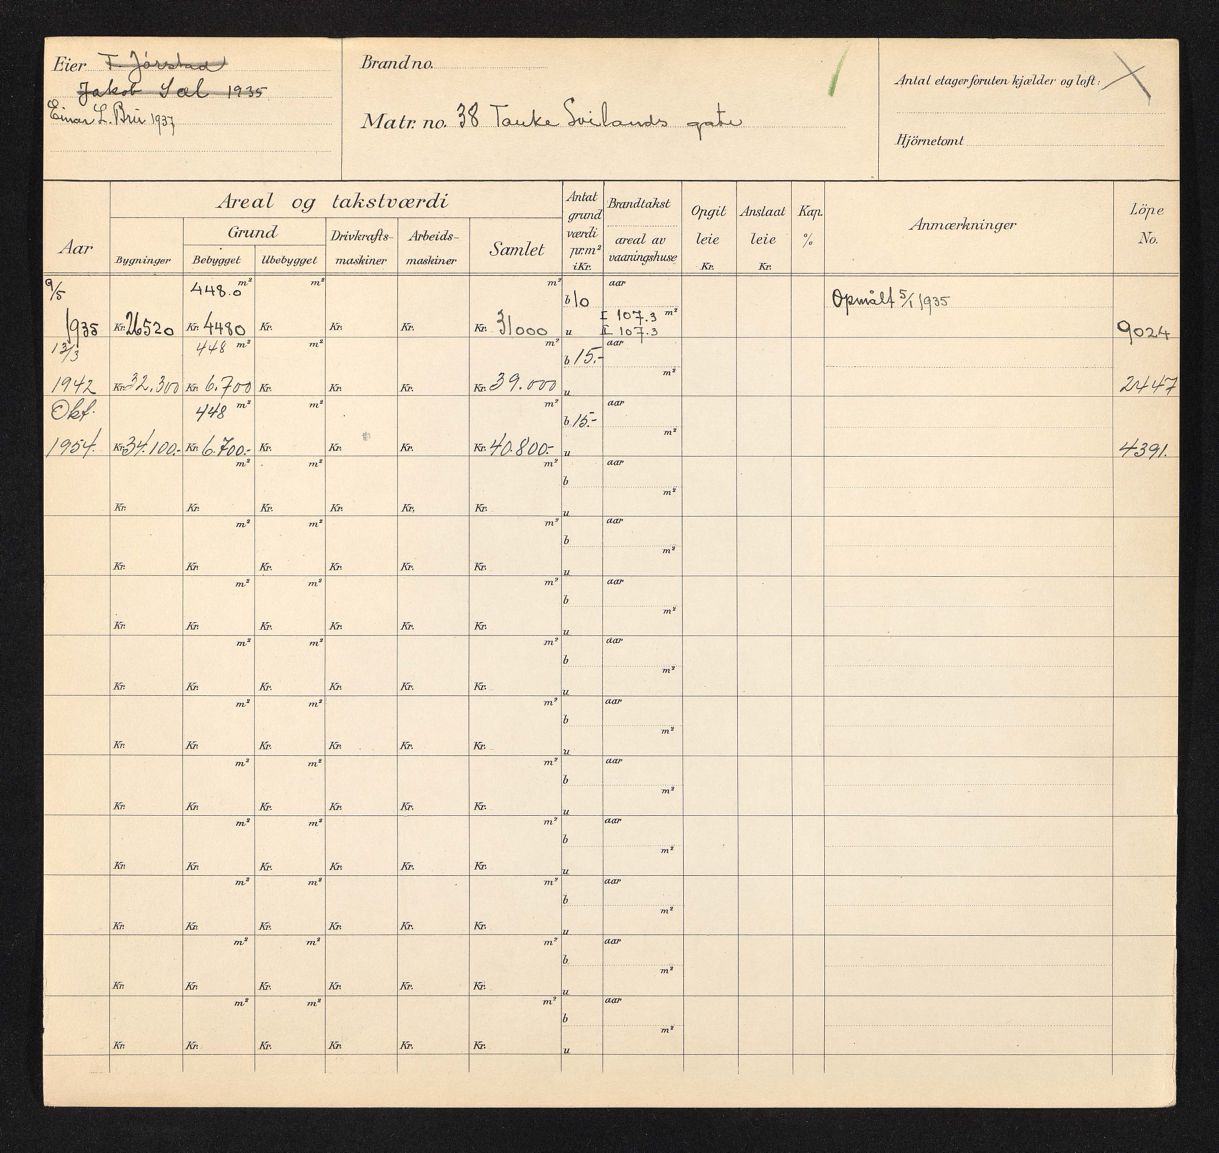 Eier F. Jørstad
Jakob Sæl 1935
Einar L. Bru 1937
Brand no.
Matr. no. 38 Tauke Svilands gate
Antal etager foruten kjælder og loft:
Hjörnetomt
Aar
Areal og takstværdi
Bygninger
Grund
Bebygget
Ubebygget
Drivkrafts-
maskiner
Arbeids-
maskiner
Samlet
Antat
grund
værdi
pr.m²
i Kr.
Brandtakst
areal av
vaaningshuse
Opgit
leie
Kr.
Anslaat
leie
Kr.
Kap.
%
Anmærkninger
Löpe
No.
9/5 448.0 m² m² m² b 10 aar Opmålt 5/1 1935
I 107.3 m²
1935 Kr. 26520 Kr. 4480 Kr. Kr. Kr. Kr. 31000 u I 107.3 9024
13/3 448 m² m² m² b 15.- aar
m²
1942 Kr. 32.300 Kr. 6.700 Kr. Kr. Kr. Kr. 39.000 u 2447
Okt. 448 m² m² m² b 15.- aar
m²
1954. Kr. 34.100.- Kr. 6.700.- Kr. Kr. Kr. Kr. 40.800.- u 4391.
m² m² m² b aar
m²
Kr. Kr. Kr. Kr. Kr. Kr. u
m² m² m² b aar
m²
Kr. Kr. Kr. Kr. Kr. Kr. u
m² m² m² b aar
m²
Kr. Kr. Kr. Kr. Kr. Kr. u
m² m² m² b aar
m²
Kr. Kr. Kr. Kr. Kr. Kr. u
m² m² m² b aar
m²
Kr. Kr. Kr. Kr. Kr. Kr. u
m² m² m² b aar
m²
Kr. Kr. Kr. Kr. Kr. Kr. u
m² m² m² b aar
m²
Kr. Kr. Kr. Kr. Kr. Kr. u
m² m² m² b aar
m²
Kr. Kr. Kr. Kr. Kr. Kr. u
m² m² m² b aar
m²
Kr. Kr. Kr. Kr. Kr. Kr. u
m² m² m² b aar
m²
Kr. Kr. Kr. Kr. Kr. Kr. u